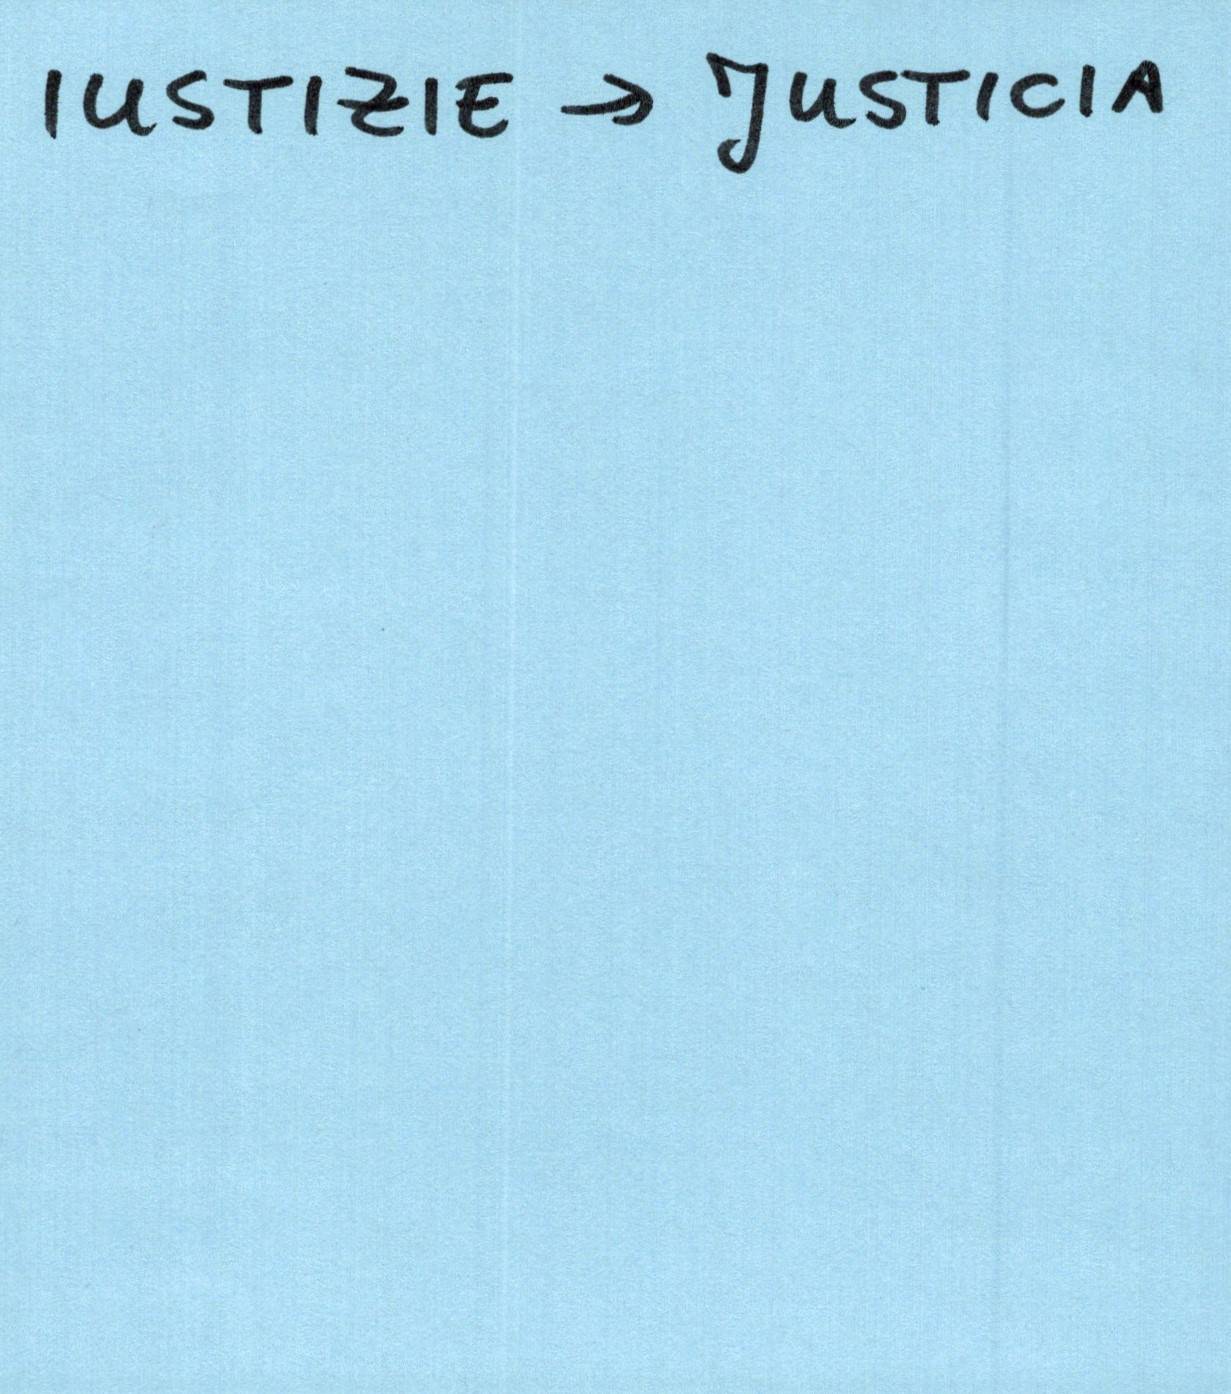 IUSTIZIE → JUSTICIA